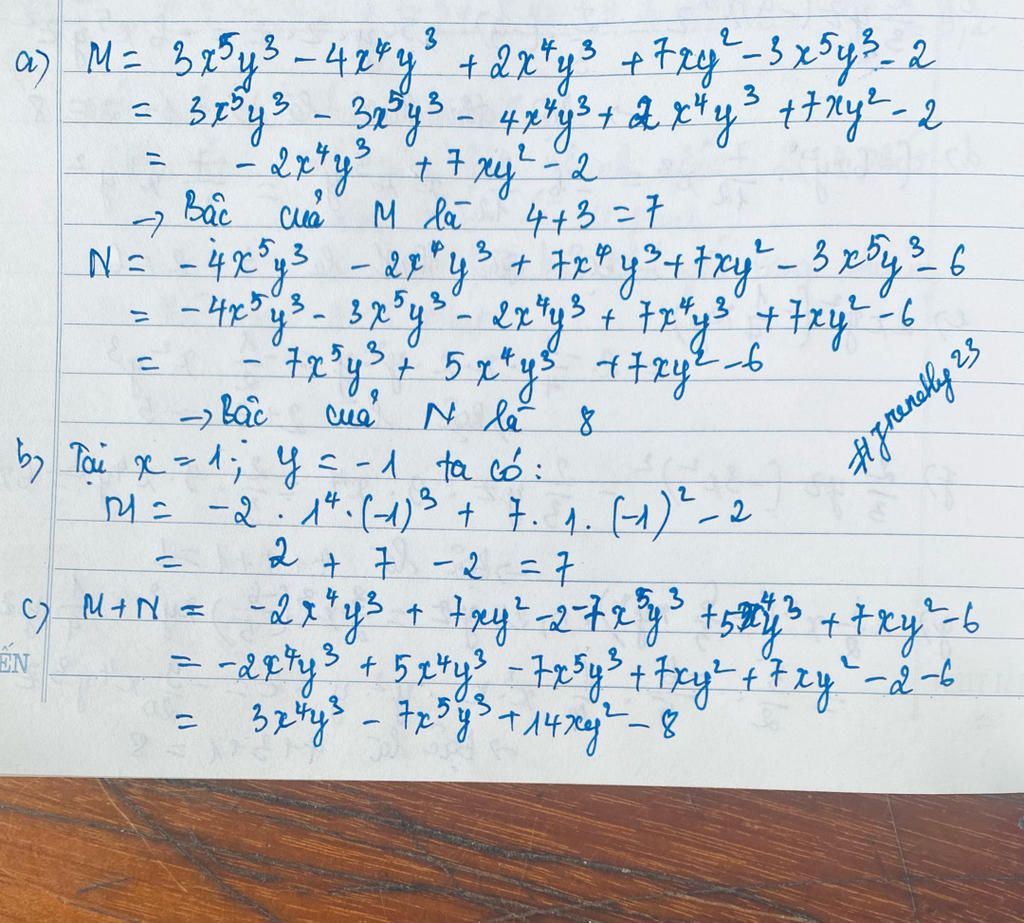 a) M = 3x⁵y³ - 4x⁴y³ + 2x⁴y³ + 7xy² - 3x⁵y³ - 2
= 3x⁵y³ - 3x⁵y³ - 4x⁴y³ + 2x⁴y³ + 7xy² - 2
= - 2x⁴y³ + 7xy² - 2
→ Bậc của M là 4+3 = 7
N = - 4x⁵y³ - 2x⁴y³ + 7x⁴y³ + 7xy² - 3x⁵y³ - 6
= - 4x⁵y³ - 3x⁵y³ - 2x⁴y³ + 7x⁴y³ + 7xy² - 6
= - 7x⁵y³ + 5x⁴y³ + 7xy² - 6
→ Bậc của N là 8
b) Tại x = 1; y = -1 ta có:
M = -2 . 1⁴ . (-1)³ + 7 . 1 . (-1)² - 2
= 2 + 7 - 2 = 7
c) M+N = -2x⁴y³ + 7xy² - 2 - 7x⁵y³ + 5x⁴y³ + 7xy² - 6
= -2x⁴y³ + 5x⁴y³ - 7x⁵y³ + 7xy² + 7xy² - 2 - 6
= 3x⁴y³ - 7x⁵y³ + 14xy² - 8
ẾN